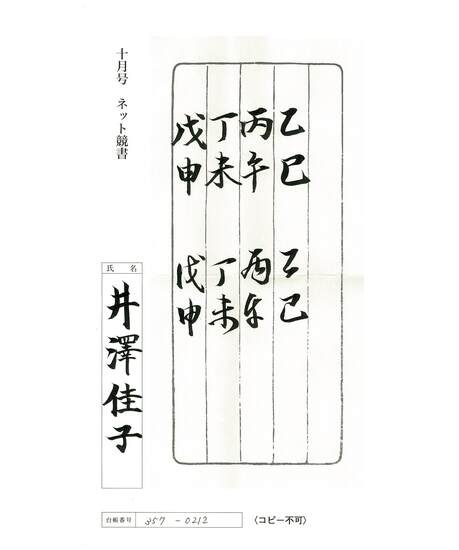 乙巳 乙巳
丙午 丙午
丁未 丁未
戊申 戊申
十月号 ネット競書
氏名
井澤佳子
台帳番号 357-0212
〈コピー不可〉